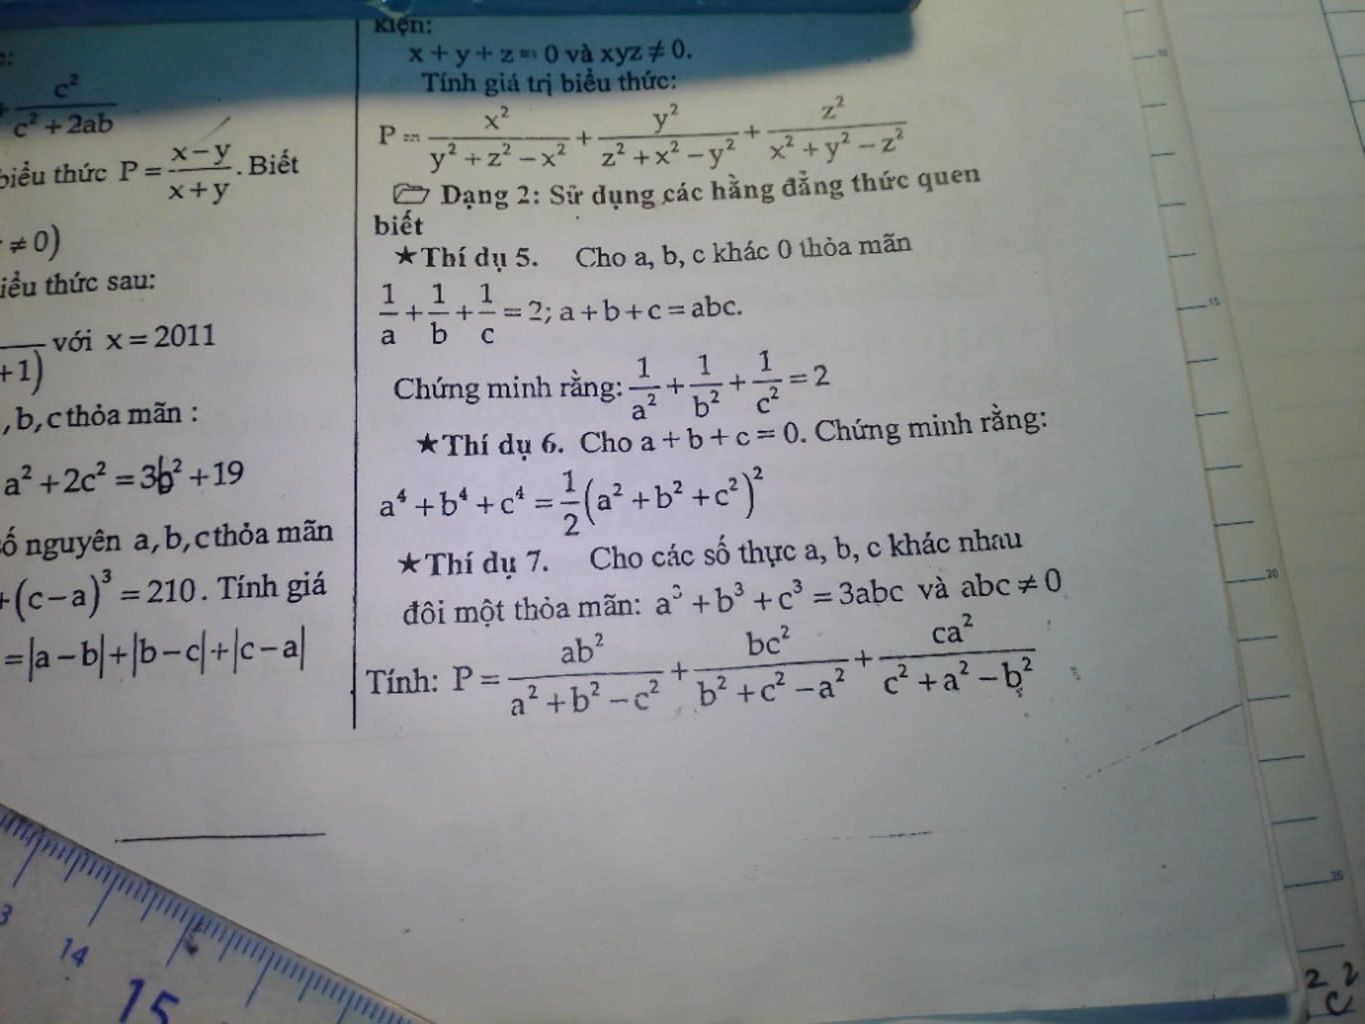 c²
c² + 2ab
biểu thức P = x – y / x + y . Biết
≠ 0)
iểu thức sau:
+1) với x = 2011
, b, c thỏa mãn :
a² + 2c² = 3b² + 19
ố nguyên a, b, c thỏa mãn
+ (c – a)³ = 210 . Tính giá
= |a – b| + |b – c| + |c – a|
kiện:
x + y + z = 0 và xyz ≠ 0.
Tính giá trị biểu thức:
P = x² / y² + z² – x² + y² / z² + x² – y² + z² / x² + y² – z²
Dạng 2: Sử dụng các hằng đẳng thức quen
biết
★Thí dụ 5. Cho a, b, c khác 0 thỏa mãn
1/a + 1/b + 1/c = 2; a + b + c = abc.
Chứng minh rằng: 1/a² + 1/b² + 1/c² = 2
★Thí dụ 6. Cho a + b + c = 0. Chứng minh rằng:
a⁴ + b⁴ + c⁴ = 1/2 (a² + b² + c²)²
★Thí dụ 7. Cho các số thực a, b, c khác nhau
đôi một thỏa mãn: a³ + b³ + c³ = 3abc và abc ≠ 0
Tính: P = ab² / a² + b² – c² + bc² / b² + c² – a² + ca² / c² + a² – b²
14
15
15
20
25
2 2
c